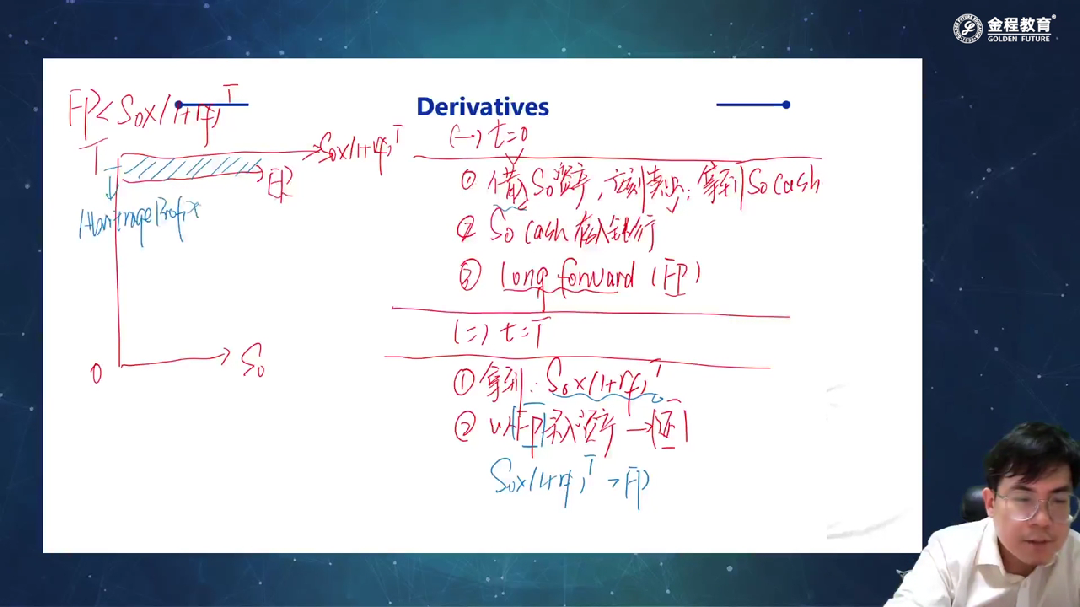 金程教育
GOLDEN FUTURE
Derivatives
FP< S₀x(1+rf)ᵀ
T
S₀x(1+rf)ᵀ
FP
Arbitrage Profit
0
S₀
(一) t=0
① 借入S₀资产, 立刻卖出; 拿到S₀ cash
② S₀ cash 存入银行
③ long forward (FP)
(二) t=T
① 拿到: S₀x(1+rf)ᵀ
② 以FP买入资产 → 还
S₀x(1+rf)ᵀ - FP